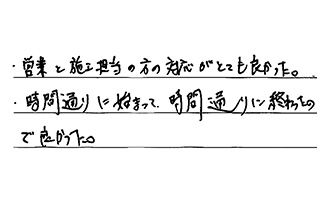 ・営業と施工担当の方の対応がとても良かった。
・時間通りに始まって、時間通りに終わったの
で良かった。